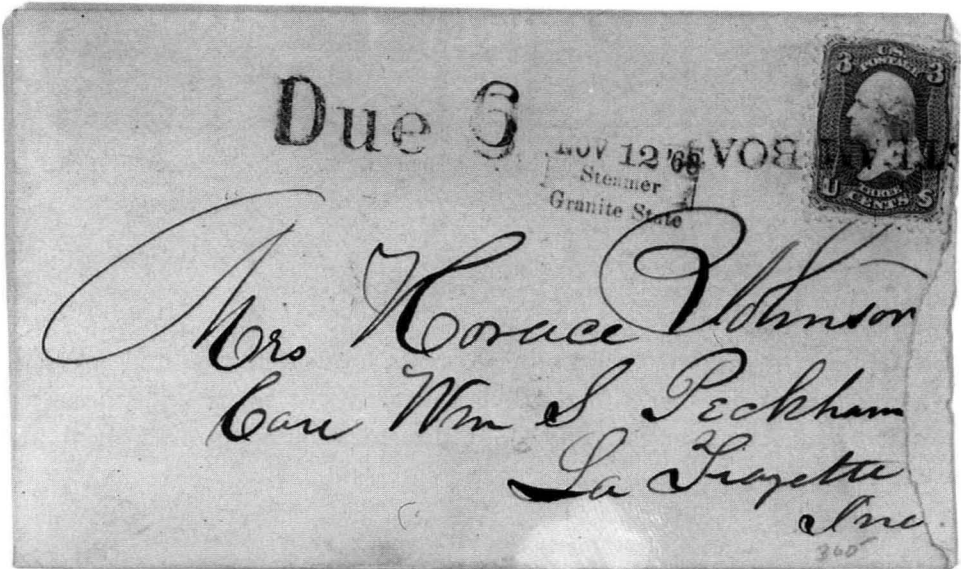 Due 6
NOV 12 '68
Steamer
Granite State
STEAMBOAT
U.S.
POSTAGE
3 3
U S
CENTS
Mrs Horace Johnson
Care Wm S Peckham
La Fayette
Ind.
360